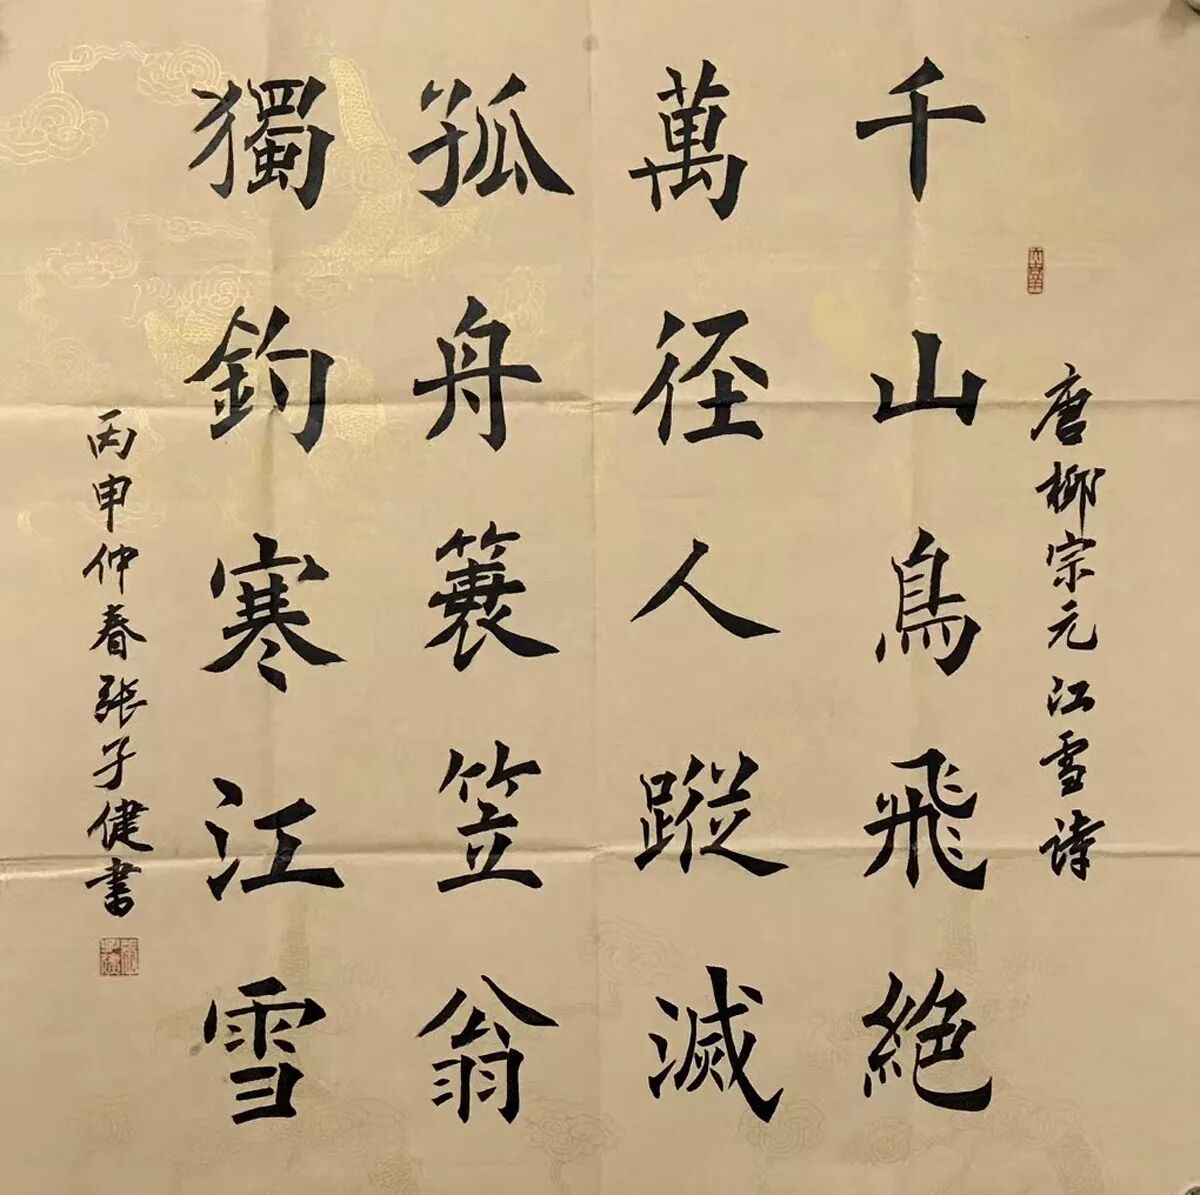 唐柳宗元江雪诗
千山鳥飛絶
萬径人蹤滅
孤舟簑笠翁
獨釣寒江雪
丙申仲春張子健書